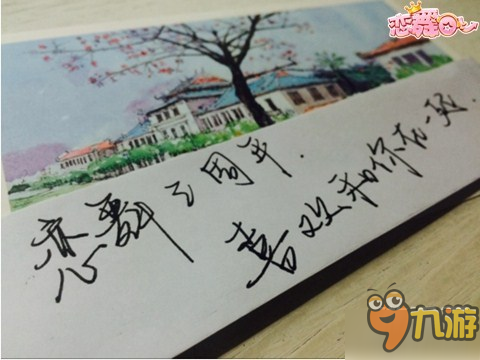 恋舞OL
恋舞3周年.
喜欢和你在一起.
九游